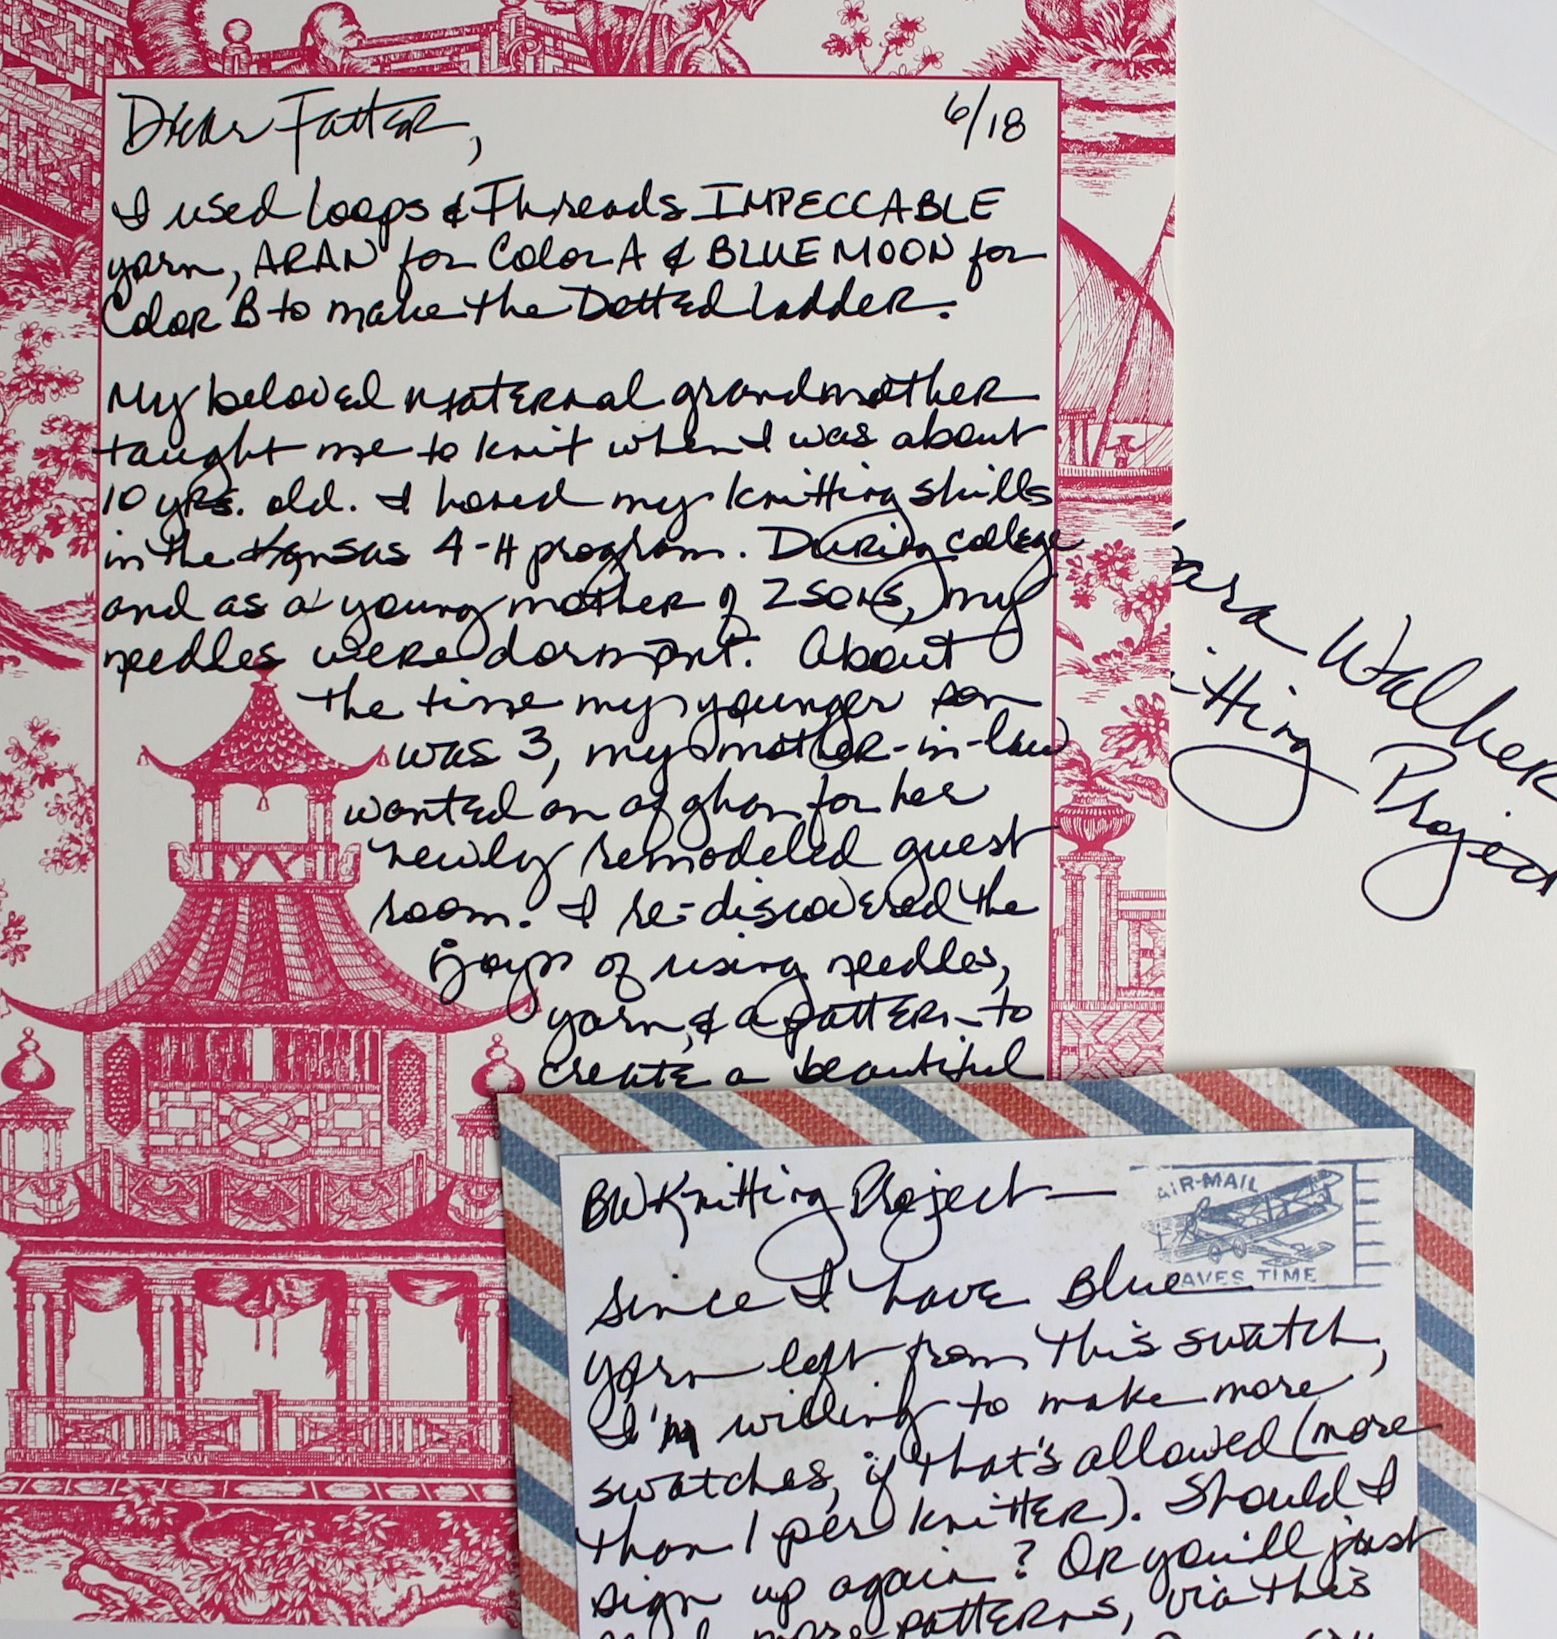 Dear Fatter,
6/18
I used Loops & Threads IMPECCABLE
yarn, ARAN for Color A & BLUE MOON for
Color B to make the Dotted Ladder.
My beloved maternal grandmother
taught me to knit when I was about
10 yrs. old. I honed my knitting skills
in the Kansas 4-H program. During college
and as a young mother of 2 sons, my
needles were dormant. About
the time my younger son
was 3, my mother-in-law
wanted an afghan for her
newly remodeled guest
room. I re-discovered the
joys of using needles,
yarn, & a pattern to
create a beautiful
ara Walker
itting Project
BW Knitting Project —
AIR-MAIL
AVES TIME
Since I have Blue
yarn left from this swatch,
I'm willing to make more
swatches, if that's allowed (more
than 1 per knitter). Should I
sign up again? Or you'll just
more patterns, via this